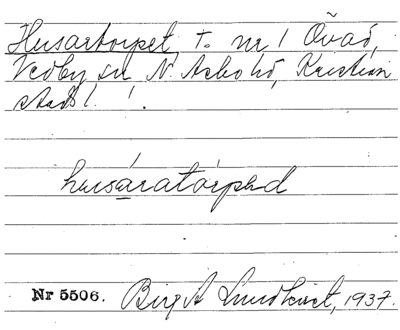 Husartorpet, t. nr 1 Övad,
Vedby sn N. Åsbo hd, Kristian
stads l.
husáratòrpəd
Nr 5506. Birgit Lundkvist, 1937.